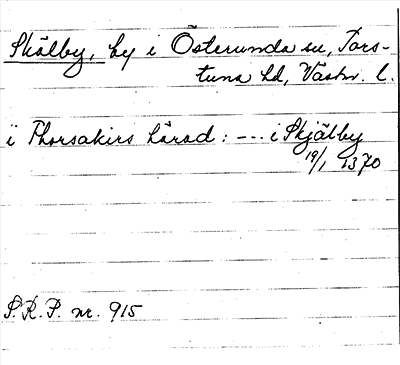 Skälby, by i Österunda sn, Tors-
tuna hd, Västm. l.
i Thorsakirs hårad: --- i Skjälby
19/1 1370
S.R.P. nr. 915